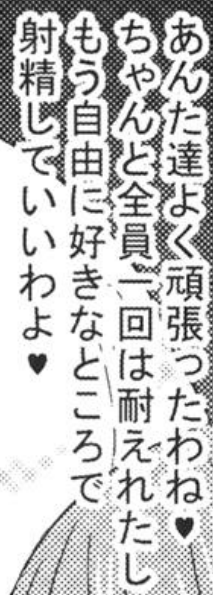 あんた達よく頑張ったわね♥
ちゃんと全員一回は耐えれたし
もう自由に好きなところで
射精していいわよ♥